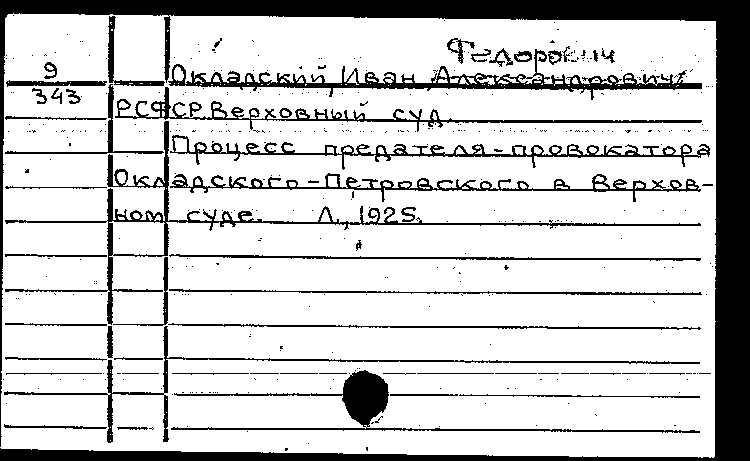 Федорович
9 Окладский, Иван Александрович
343 РСФСР. Верховный суд.
Процесс предателя-провокатора
Окладского-Петровского в Верхов-
ном суде. Л., 1925.